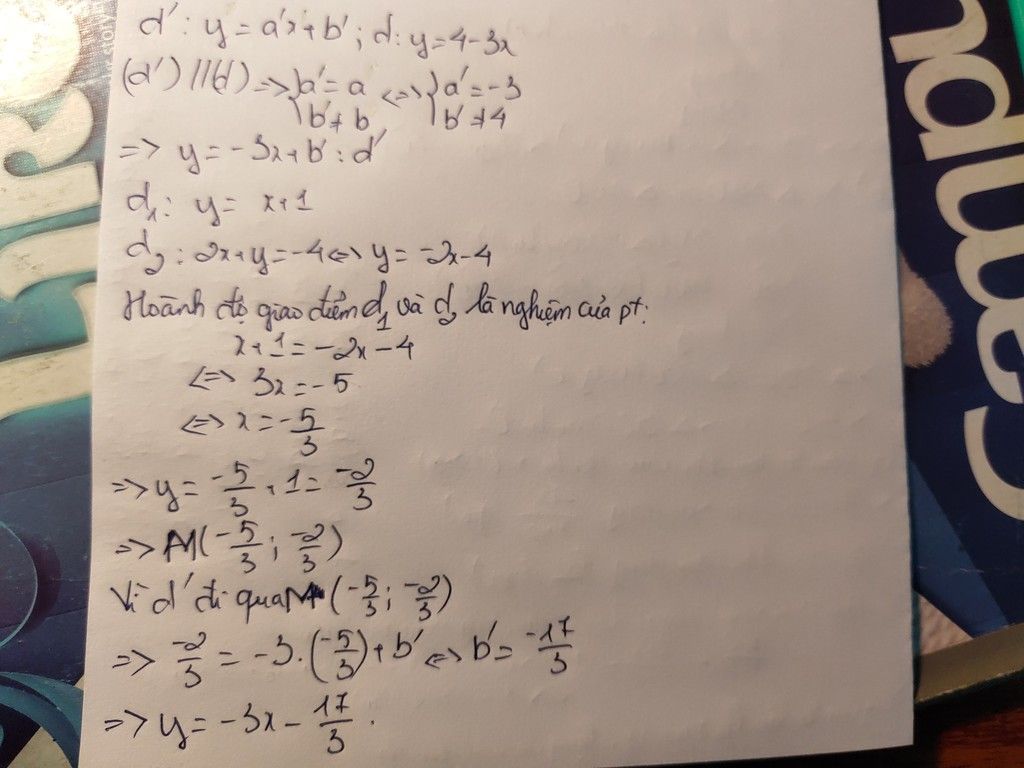 d': y = a'x + b' ; d: y = 4 - 3x
(d') // (d) => { b' = a <=> { a' = -3
b' ≠ b b' ≠ 4
=> y = -3x + b' : d'
d₁: y = x + 1
d₂: 2x + y = -4 <=> y = -2x - 4
Hoành độ giao điểm d₁ và d₂ là nghiệm của pt:
x + 1 = -2x - 4
<=> 3x = -5
<=> x = -5/3
=> y = -5/3 + 1 = -2/3
=> M(-5/3 ; -2/3)
Vì d' đi qua M (-5/3 ; -2/3)
=> -2/3 = -3.(-5/3) + b' <=> b' = -17/3
=> y = -3x - 17/3 .
story